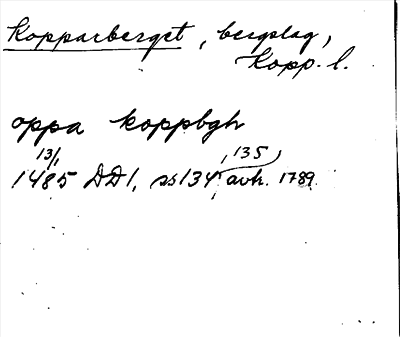 Kopparberget, bergslag,
Kopp. l.
oppa koppbgh
13/1 135
1485 DD1, ss134 avkr. 1789